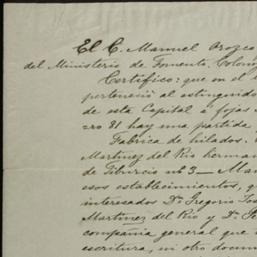 El C. Manuel Orozco
del Ministerio de Fomento, Colon
Certifico: que en el
perteneció al estinguido
de esta Capital á fojas
ro 81 hay una partida
Fabrica de hilados.
Martinez del Rio herman
de Tiburcio nº 3 — Man
esos establecimientos, q
interesados Dn. Gregorio Jos
Martinez del Rio y Dn. P
compañia general que
escritura, ni otro docum